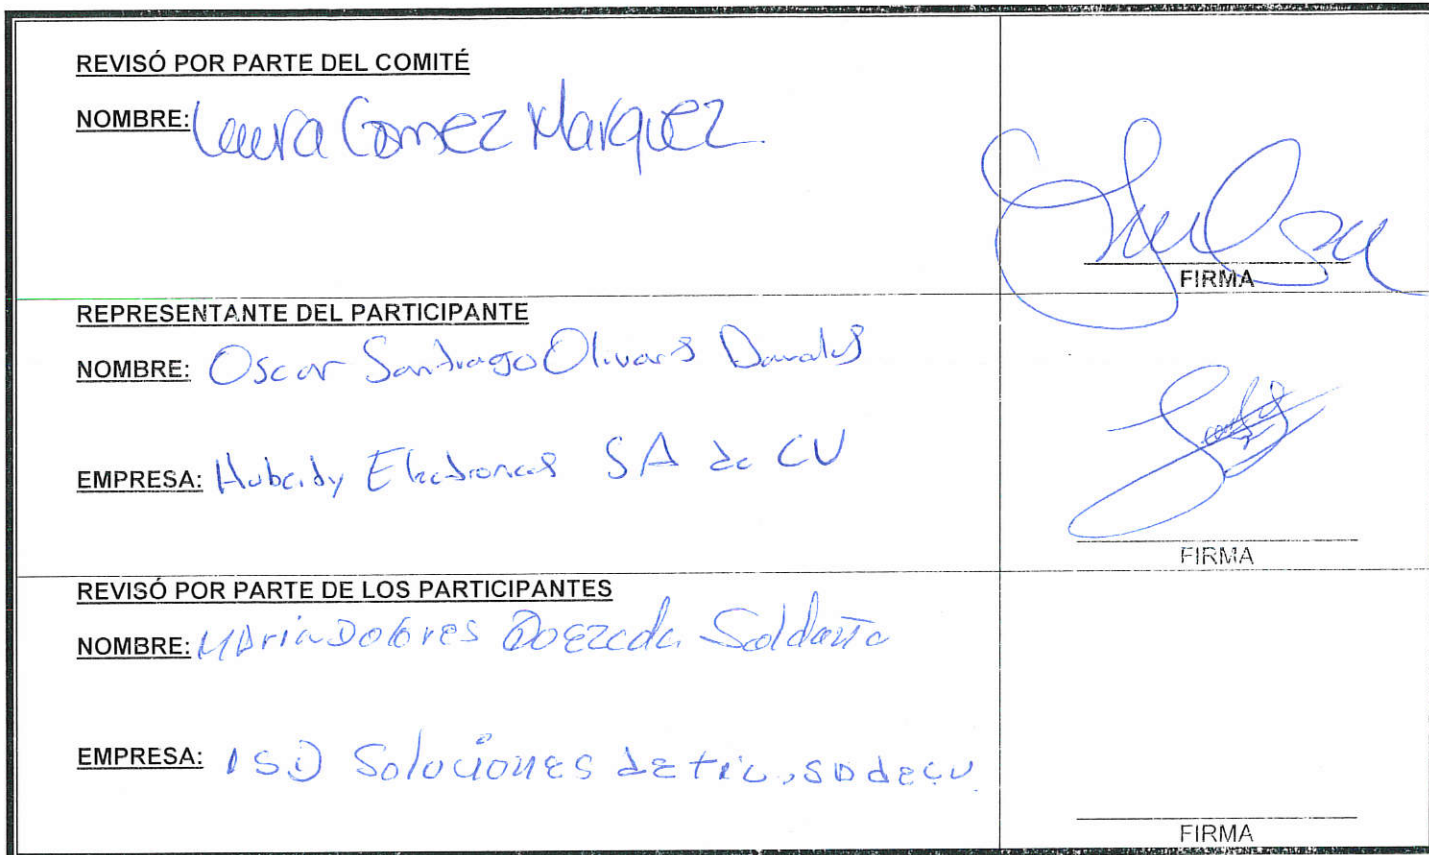 REVISÓ POR PARTE DEL COMITÉ
NOMBRE: Laura Gomez Marquez
FIRMA
REPRESENTANTE DEL PARTICIPANTE
NOMBRE: Oscar Santiago Olivares Davalos
EMPRESA: SA de CV
FIRMA
REVISÓ POR PARTE DE LOS PARTICIPANTES
NOMBRE: Maria Dolores Quezada Saldaña
EMPRESA: ISD Soluciones de tic, SA de CV
FIRMA